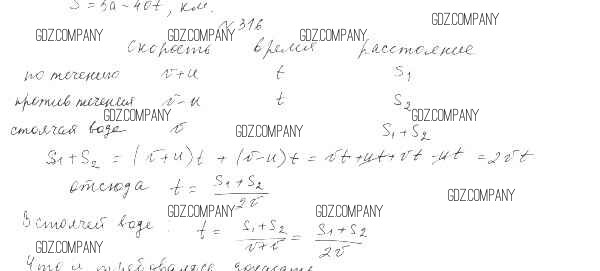 S = 5a - 40t, км.
N 316
GDZ.COMPANY
GDZ.COMPANY GDZ.COMPANY GDZ.COMPANY
скорость время расстояние
по течению v+u t S₁
против течения v-u t S₂
GDZ.COMPANY GDZ.COMPANY
стоячая вода v S₁+S₂
GDZ.COMPANY
S₁+S₂ = (v+u)t + (v-u)t = vt+ut+vt-ut = 2vt
отсюда t = (S₁+S₂)/2v
GDZ.COMPANY
GDZ.COMPANY GDZ.COMPANY
В стоячей воде. t = (S₁+S₂)/(v+v) = (S₁+S₂)/2v
GDZ.COMPANY
Что и требовалось доказать